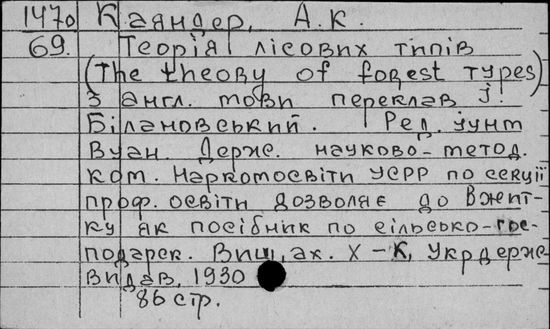 1470 Каяндер, А. К.
69. Теорія лісових типів
(The theory of forest types)
З англ. мови переклав І.
Білановський. Ред.
Вуан. Держ. науково-метод.
ком. Наркомосвіти УСРР по секції
проф. освіти дозволяє до вжит-
ку як посібник по сільсько-гос-
подарск. Виш, ах. Х-К, Укрдерж-
видав, 1930
86 стр.